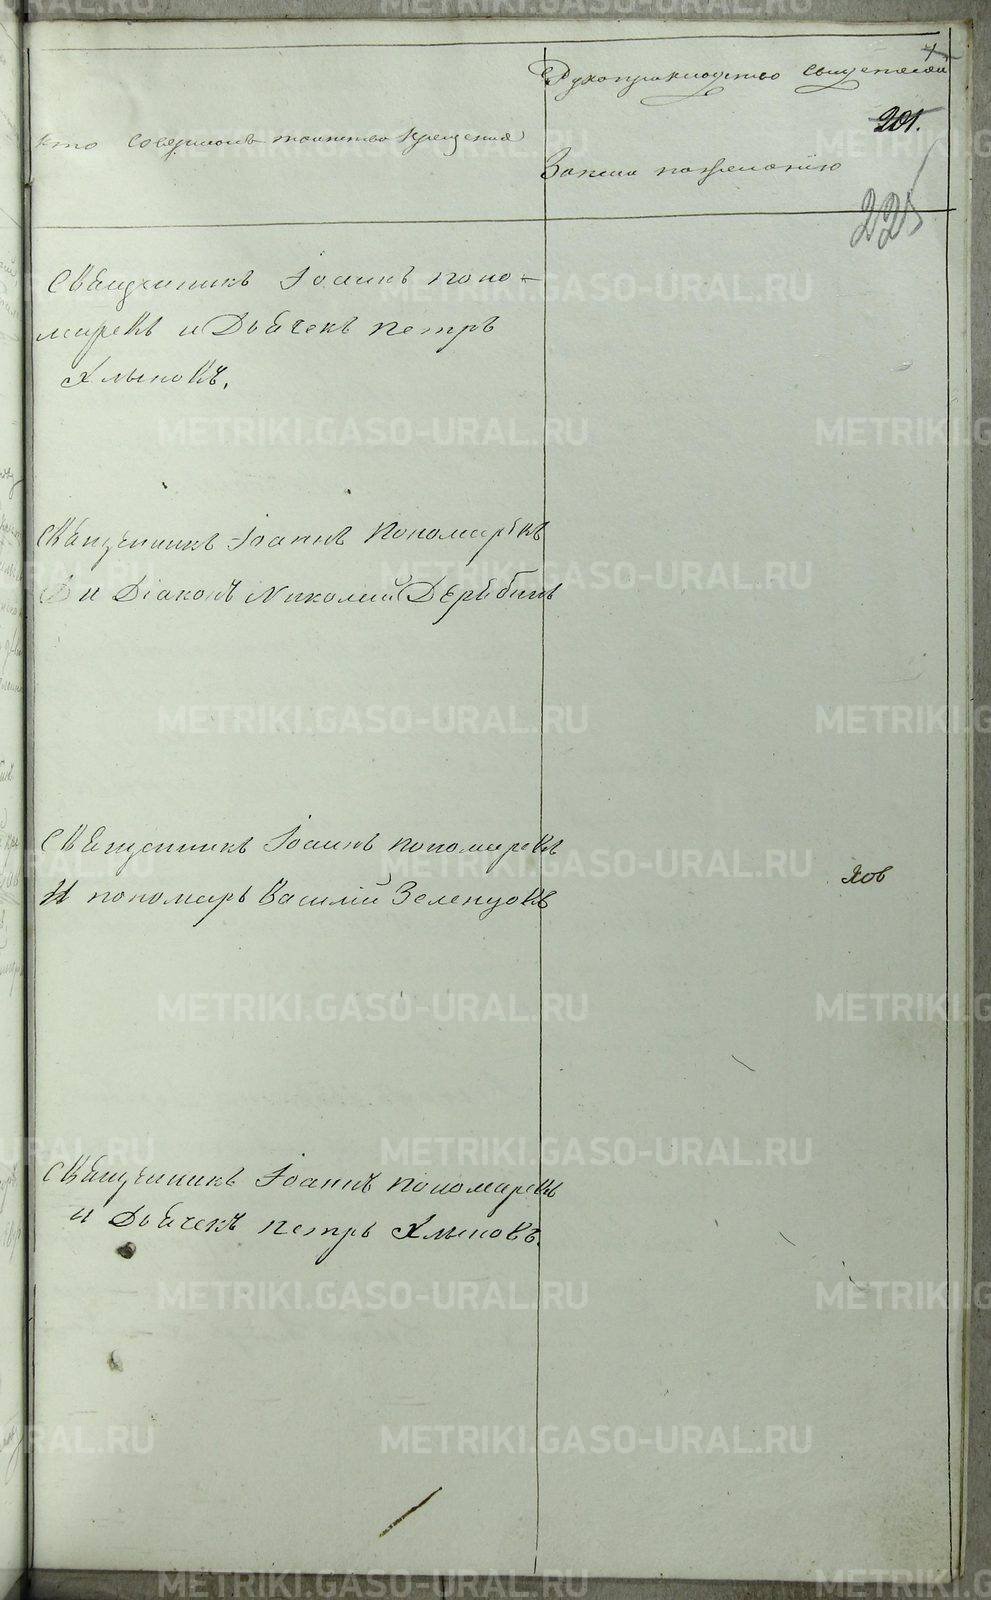 Рукоприкладство свидетелей
201.
кто совершалъ таинство крещения
Записи по желанію
225
Священникъ Іоаннъ Поно-
маревъ и Дьячекъ Петръ
Хлыновъ.
Священникъ Іоаннъ Пономаревъ
и Діаконъ Николай Дерябинъ
Священникъ Іоаннъ Пономаревъ
И пономарь Василій Зеленцовъ
хов
Священникъ Іоаннъ Пономаревъ
и Дьячекъ Петръ Хлыновъ.
METRIKI.GASO-URAL.RU